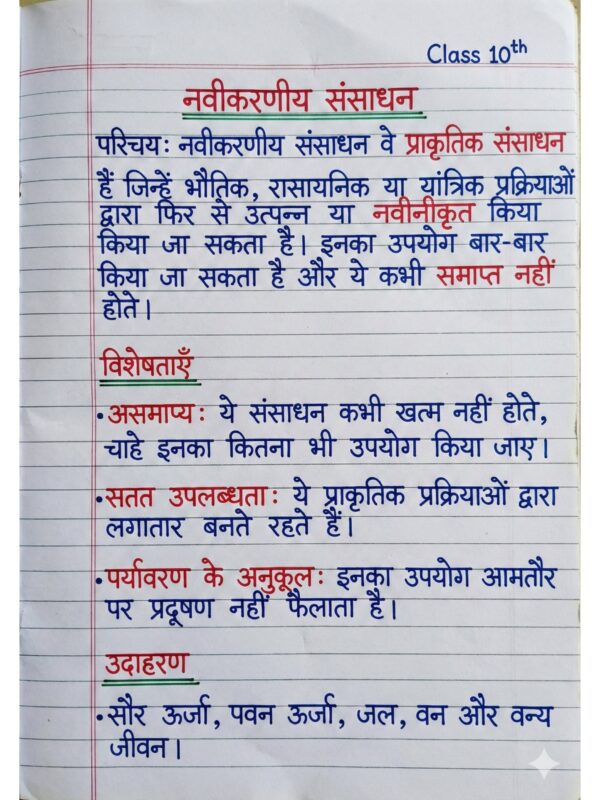 Class 10th
नवीकरणीय संसाधन
परिचय: नवीकरणीय संसाधन वे प्राकृतिक संसाधन
हैं जिन्हें भौतिक, रासायनिक या यांत्रिक प्रक्रियाओं
द्वारा फिर से उत्पन्न या नवीनीकृत किया
किया जा सकता है। इनका उपयोग बार-बार
किया जा सकता है और ये कभी समाप्त नहीं
होते।
विशेषताएँ
• असमाप्य: ये संसाधन कभी खत्म नहीं होते,
चाहे इनका कितना भी उपयोग किया जाए।
• सतत उपलब्धता: ये प्राकृतिक प्रक्रियाओं द्वारा
लगातार बनते रहते हैं।
• पर्यावरण के अनुकूल: इनका उपयोग आमतौर
पर प्रदूषण नहीं फैलाता है।
उदाहरण
• सौर ऊर्जा, पवन ऊर्जा, जल, वन और वन्य
जीवन।